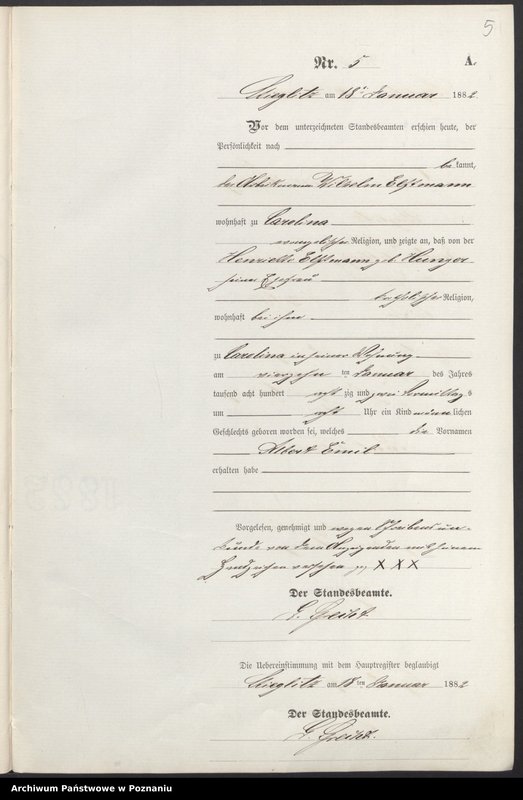 5
Nr. 5 A.
Stieglitz am 18ten Januar 1882.
Vor dem unterzeichneten Standesbeamten erschien heute, der
Persönlichkeit nach
bekannt,
der Wilhelm Elstmann
wohnhaft zu Carolina
evangelischer Religion, und zeigte an, daß von der
Henriette Elstmann geb. Hunger
seiner Ehefrau
katholischer Religion,
wohnhaft bei ihm
zu Carolina in seiner Wohnung
am vierzehn ten Januar des Jahres
tausend acht hundert acht zig und zwei Vormittags
um acht Uhr ein Kind männlichen
Geschlechts geboren worden sei, welches die Vornamen
Albert Emil
erhalten habe
Vorgelesen, genehmigt und wegen Schreibensun-
kunde von dem Anzeigenden mit seinem
Handzeichen versehen XXX
Der Standesbeamte.
Die Uebereinstimmung mit dem Hauptregister beglaubigt
Stieglitz am 18ten Januar 1882
Der Standesbeamte.
Archiwum Państwowe w Poznaniu